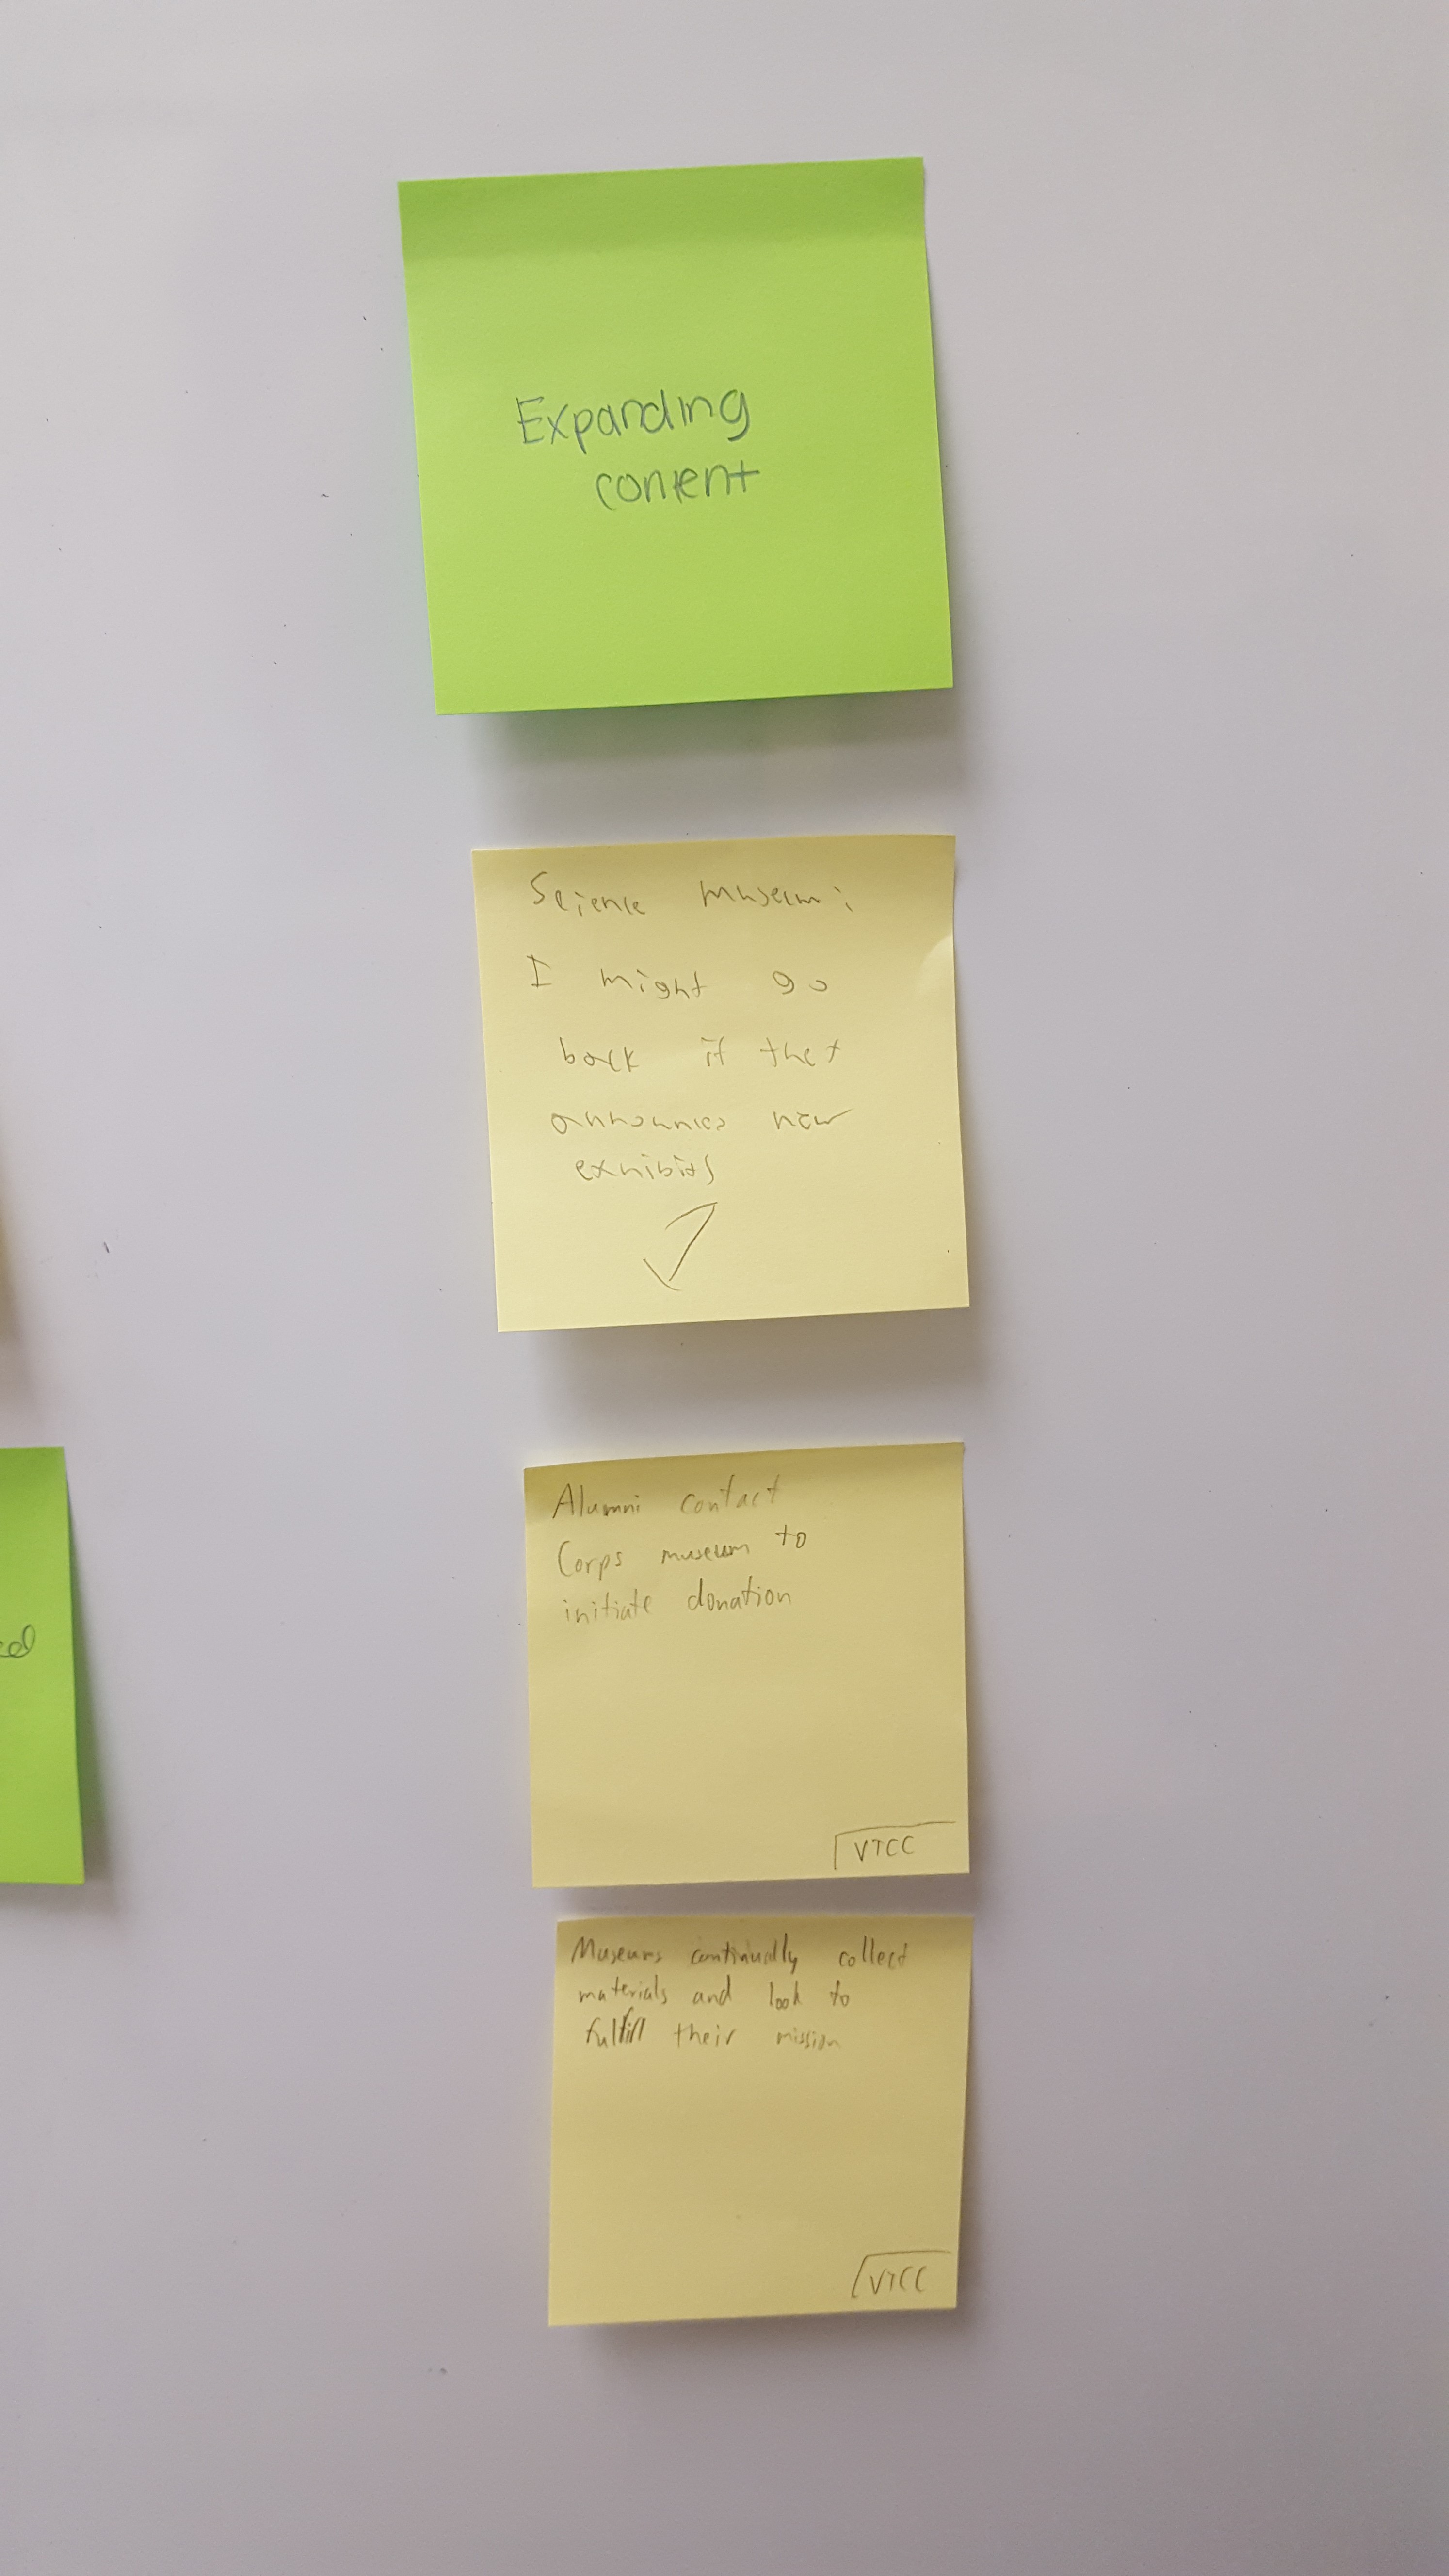 Expanding
content
Science museum:
I might go
back if they
announces new
exhibits
Alumni contact
Corps museum to
initiate donation
VTCC
Museums continually collect
materials and look to
fulfill their mission
VTCC